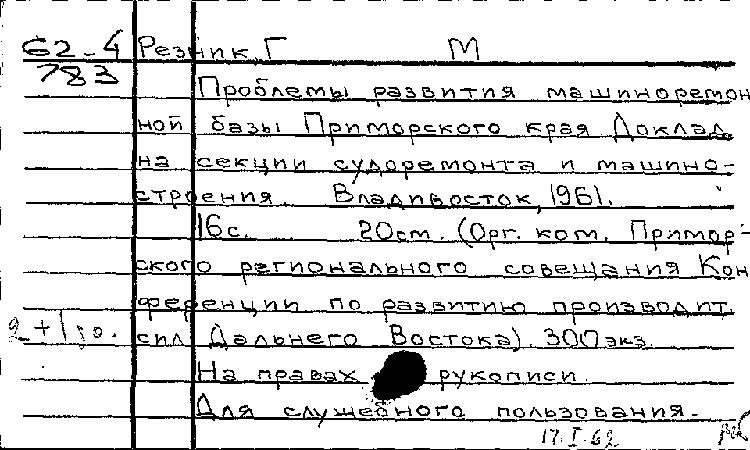 62-4 Резник, Г М
783
Проблемы развития машиноремон
ной базы Приморского края Доклад
на секции судоремонта и машино-
строения. Владивосток, 1961.
16с. 20см. (Орг. ком. Примор-
ского регионального совещания Кон
ференции по развитию производит.
2+1 сил Дальнего Востока) 300экз.
На правах рукописи
Для служебного пользования.
17.I.62